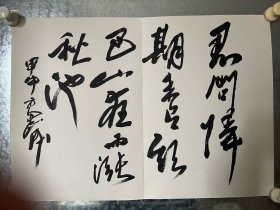 君问歸
期未有期
巴山夜雨漲
秋池
甲申